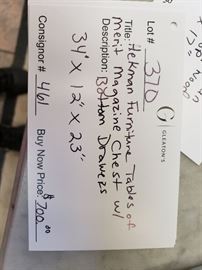 Lot # 370
G
GLEATON'S
Title: Hekman Furniture Tables of
Merit Magazine Chest w/
Description: Bottom Drawers
34" x 12" x 23"
Consignor # 461
Buy Now Price: $700.00